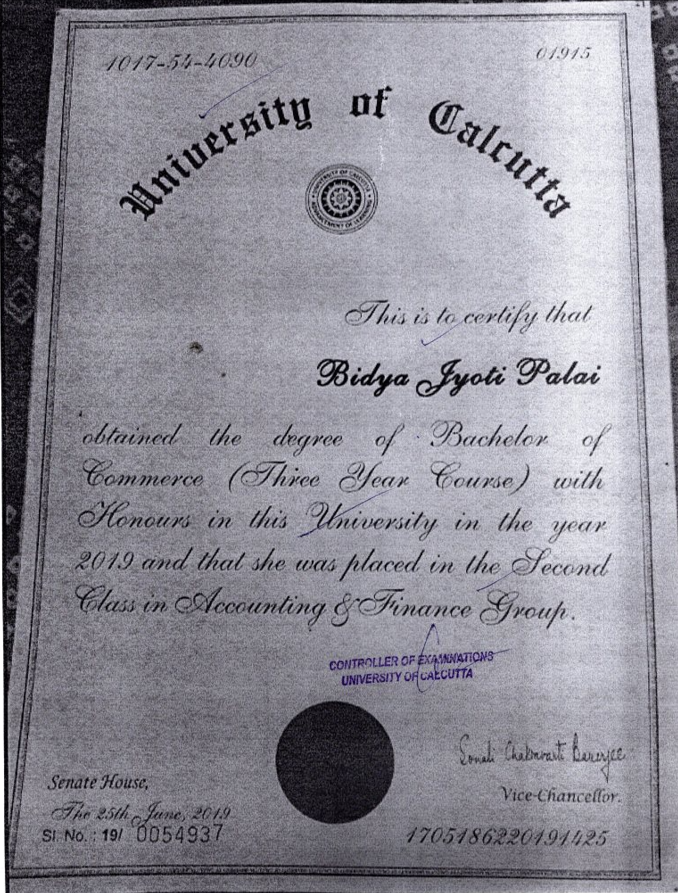 1017-54-4090
01915
University of Calcutta
UNIVERSITY OF CALCUTTA
ADVANCEMENT OF LEARNING
This is to certify that
Bidya Jyoti Palai
obtained the degree of Bachelor of
Commerce (Three Year Course) with
Honours in this University in the year
2019 and that she was placed in the Second
Class in Accounting & Finance Group.
CONTROLLER OF EXAMINATIONS
UNIVERSITY OF CALCUTTA
Sonali Chakravarti Banerjee
Senate House,
Vice-Chancellor.
The 25th June, 2019
Sl. No. : 19/ 0054937
17051862201914​25